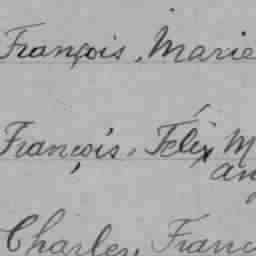 François, Marie
François, Félix M
an
Charles, Franç